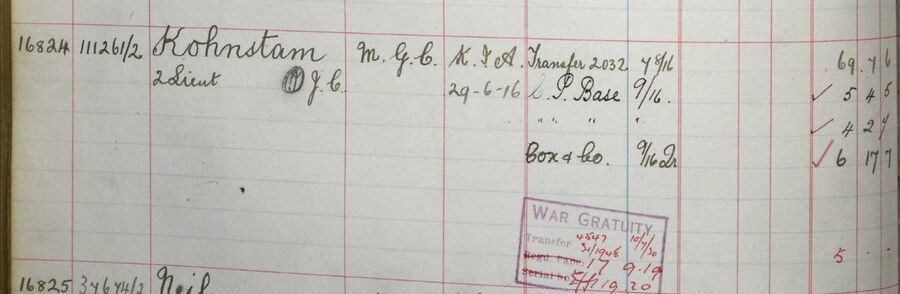 16824 111261/2 Kohnstam M. G. C. K. I. A. Transfer 2032 8/16 69. 7 6
2 Lieut J. C. 29-6-16 P. Base 9/16. ✓ 5 4 5
" " " " ✓ 4 2
Cox & Co. 9/16 Dr ✓ 6 17 7
WAR GRATUITY
Transfer 4547 10/4/30
31/1948
Regd. Paper 17 9.19
Serial No. 19 20
5 . .
16825 37674/2 Neil